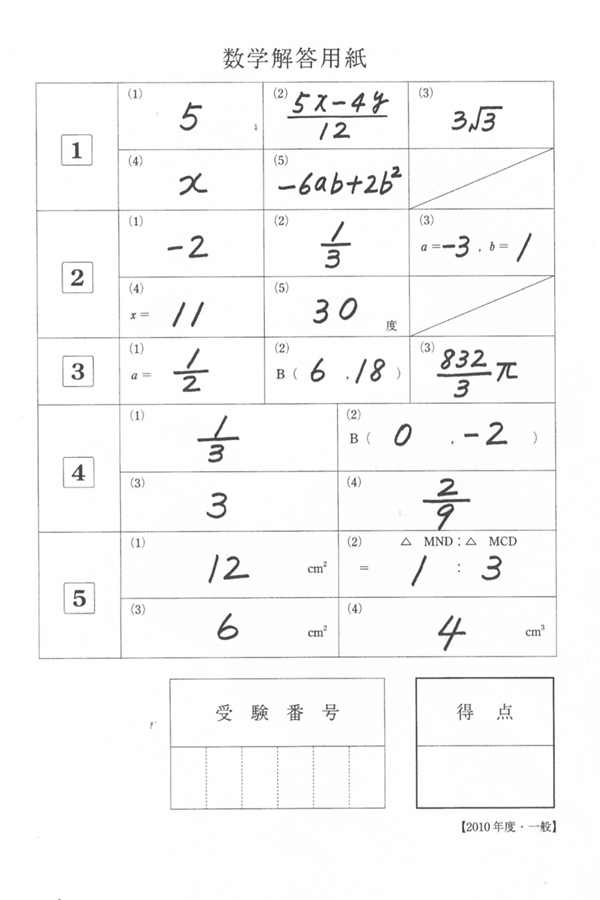 数学解答用紙
1
(1) 5
(2) 5x-4y/12
(3) 3√3
(4) x
(5) -6ab+2b²
2
(1) -2
(2) 1/3
(3) a=-3, b=1
(4) x= 11
(5) 30 度
3
(1) a= 1/2
(2) B( 6 , 18 )
(3) 832/3 π
4
(1) 1/3
(2) B( 0 , -2 )
(3) 3
(4) 2/9
5
(1) 12 cm²
(2) △ MND : △ MCD
= 1 : 3
(3) 6 cm²
(4) 4 cm³
受験番号
得点
【2010年度・一般】